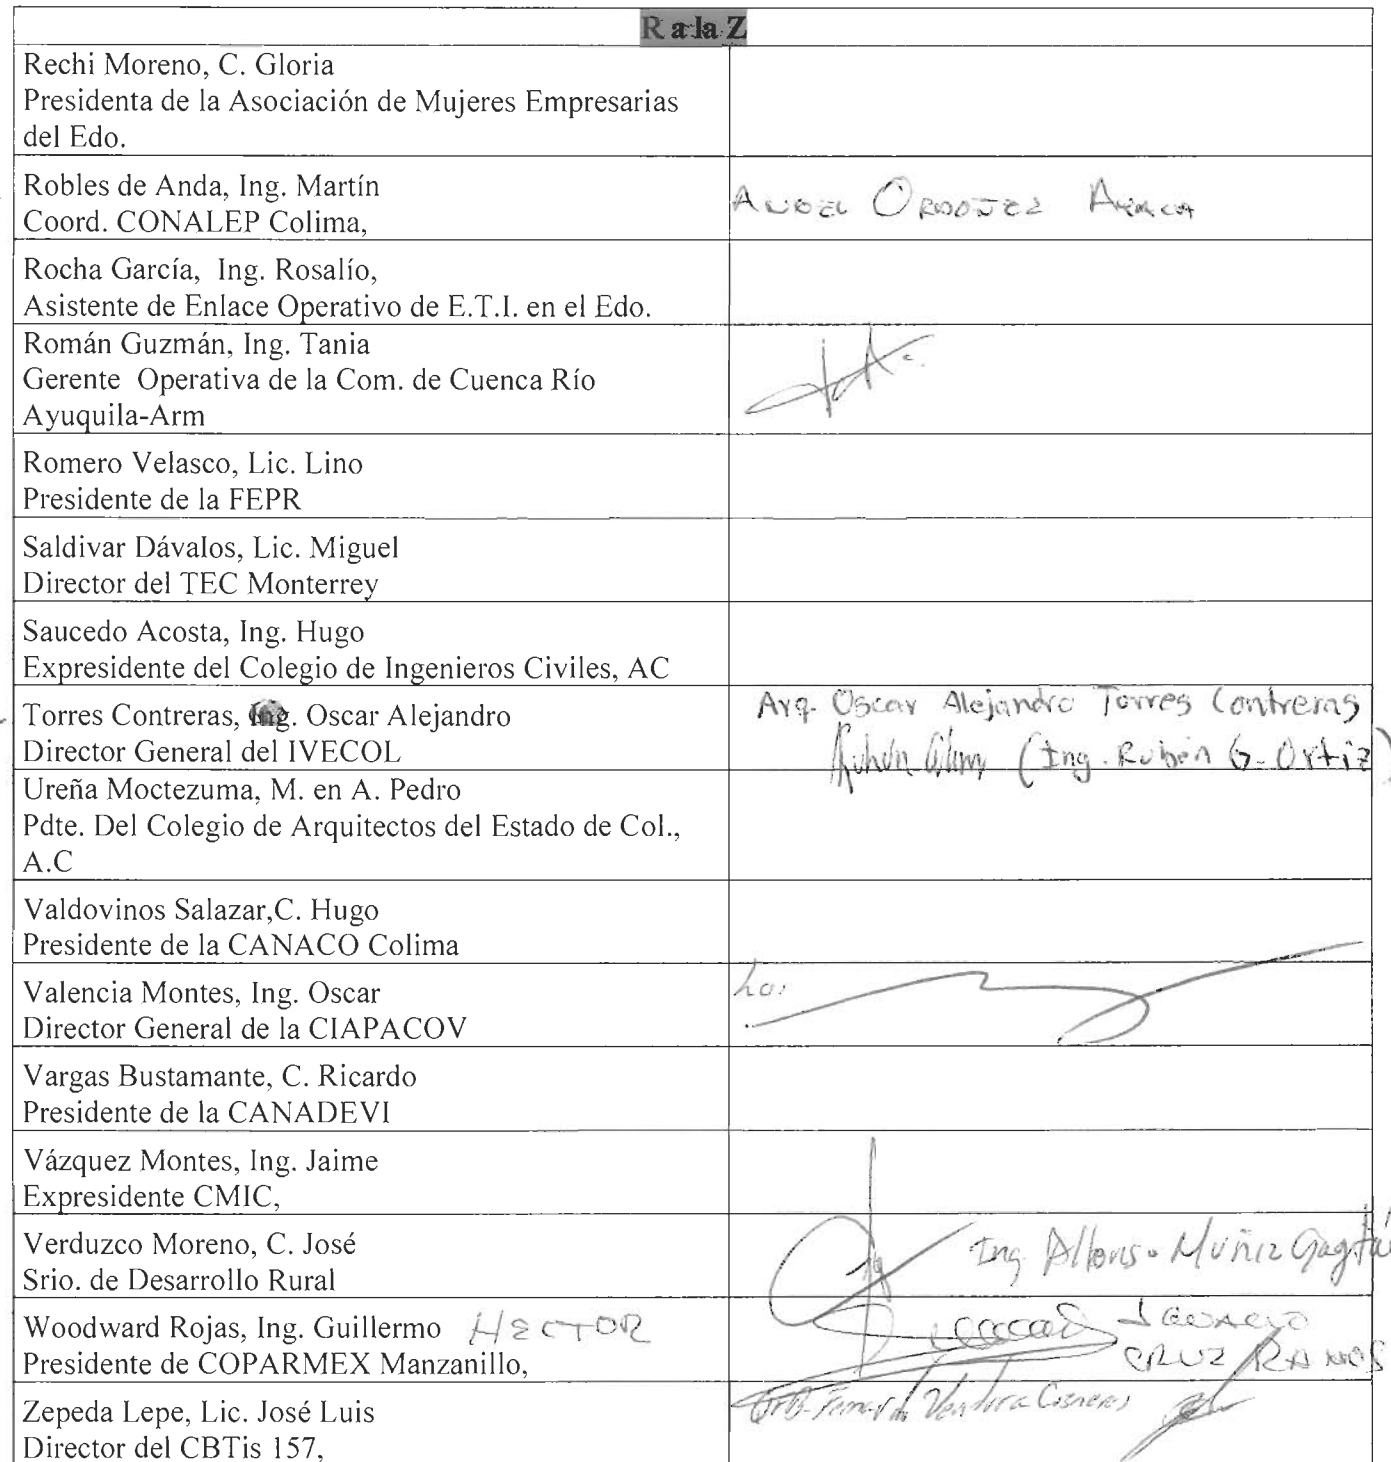 R a la Z
Rechi Moreno, C. Gloria
Presidenta de la Asociación de Mujeres Empresarias
del Edo.
Robles de Anda, Ing. Martín
Coord. CONALEP Colima,
ANGEL ORDOÑEZ
Rocha García, Ing. Rosalío,
Asistente de Enlace Operativo de E.T.I. en el Edo.
Román Guzmán, Ing. Tania
Gerente Operativa de la Com. de Cuenca Río
Ayuquila-Arm
Romero Velasco, Lic. Lino
Presidente de la FEPR
Saldivar Dávalos, Lic. Miguel
Director del TEC Monterrey
Saucedo Acosta, Ing. Hugo
Expresidente del Colegio de Ingenieros Civiles, AC
Torres Contreras, Ing. Oscar Alejandro
Director General del IVECOL
Arq. Oscar Alejandro Torres Contreras
(Ing. Rubén G. Ortiz)
Ureña Moctezuma, M. en A. Pedro
Pdte. Del Colegio de Arquitectos del Estado de Col.,
A.C
Valdovinos Salazar,C. Hugo
Presidente de la CANACO Colima
Valencia Montes, Ing. Oscar
Director General de la CIAPACOV
Vargas Bustamante, C. Ricardo
Presidente de la CANADEVI
Vázquez Montes, Ing. Jaime
Expresidente CMIC,
Verduzco Moreno, C. José
Srio. de Desarrollo Rural
Ing. Alfonso Muñiz
Woodward Rojas, Ing. Guillermo HECTOR
Presidente de COPARMEX Manzanillo,
IGNACIO
CRUZ RAMOS
Zepeda Lepe, Lic. José Luis
Director del CBTis 157,
Ventura Cisneros